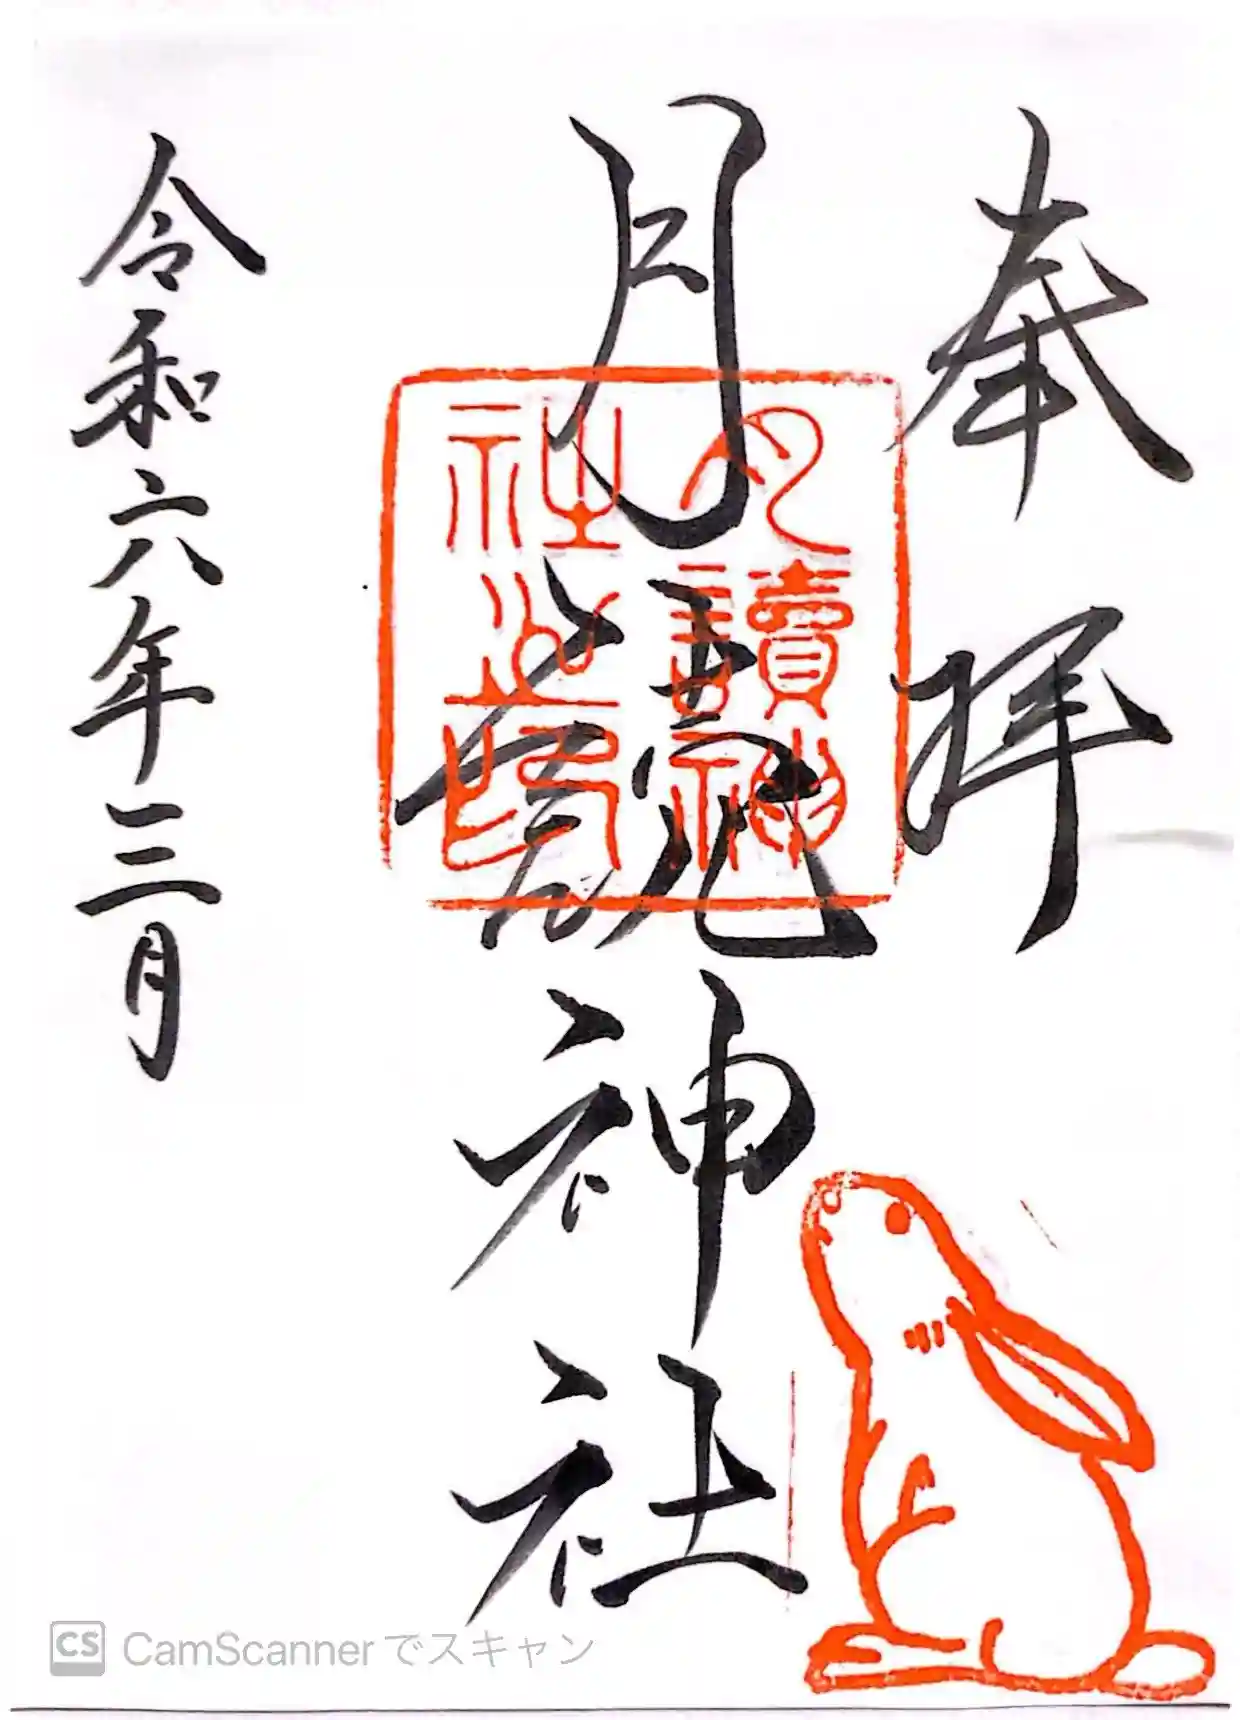 奉拝
月読神社
月讀神社之印
令和六年三月
CS CamScannerでスキャン